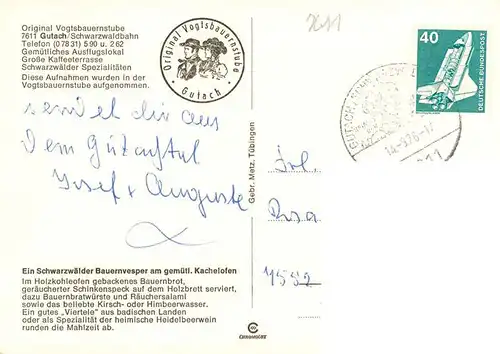 Original Vogtsbauernstube
7611 Gutach/Schwarzwaldbahn
Telefon (07831) 590 u. 262
Gemütliches Ausflugslokal
Große Kaffeeterrasse
Schwarzwälder Spezialitäten
Diese Aufnahmen wurden in der
Vogtsbauernstube aufgenommen.
Original Vogtsbauernstube
· Gutach ·
40
DEUTSCHE BUNDESPOST
GUTACH
sendet dir aus
Dem Gutachtal
Josef + Auguste
Frl.
Rosa
Gebr. Metz, Tübingen
Ein Schwarzwälder Bauernvesper am gemütl. Kachelofen
Im Holzkohleofen gebackenes Bauernbrot,
geräucherter Schinkenspeck auf dem Holzbrett serviert,
dazu Bauernbratwürste und Räuchersalami
sowie das beliebte Kirsch- oder Himbeerwasser.
Ein gutes „Viertele" aus badischen Landen
oder als Spezialität der heimische Heidelbeerwein
runden die Mahlzeit ab.